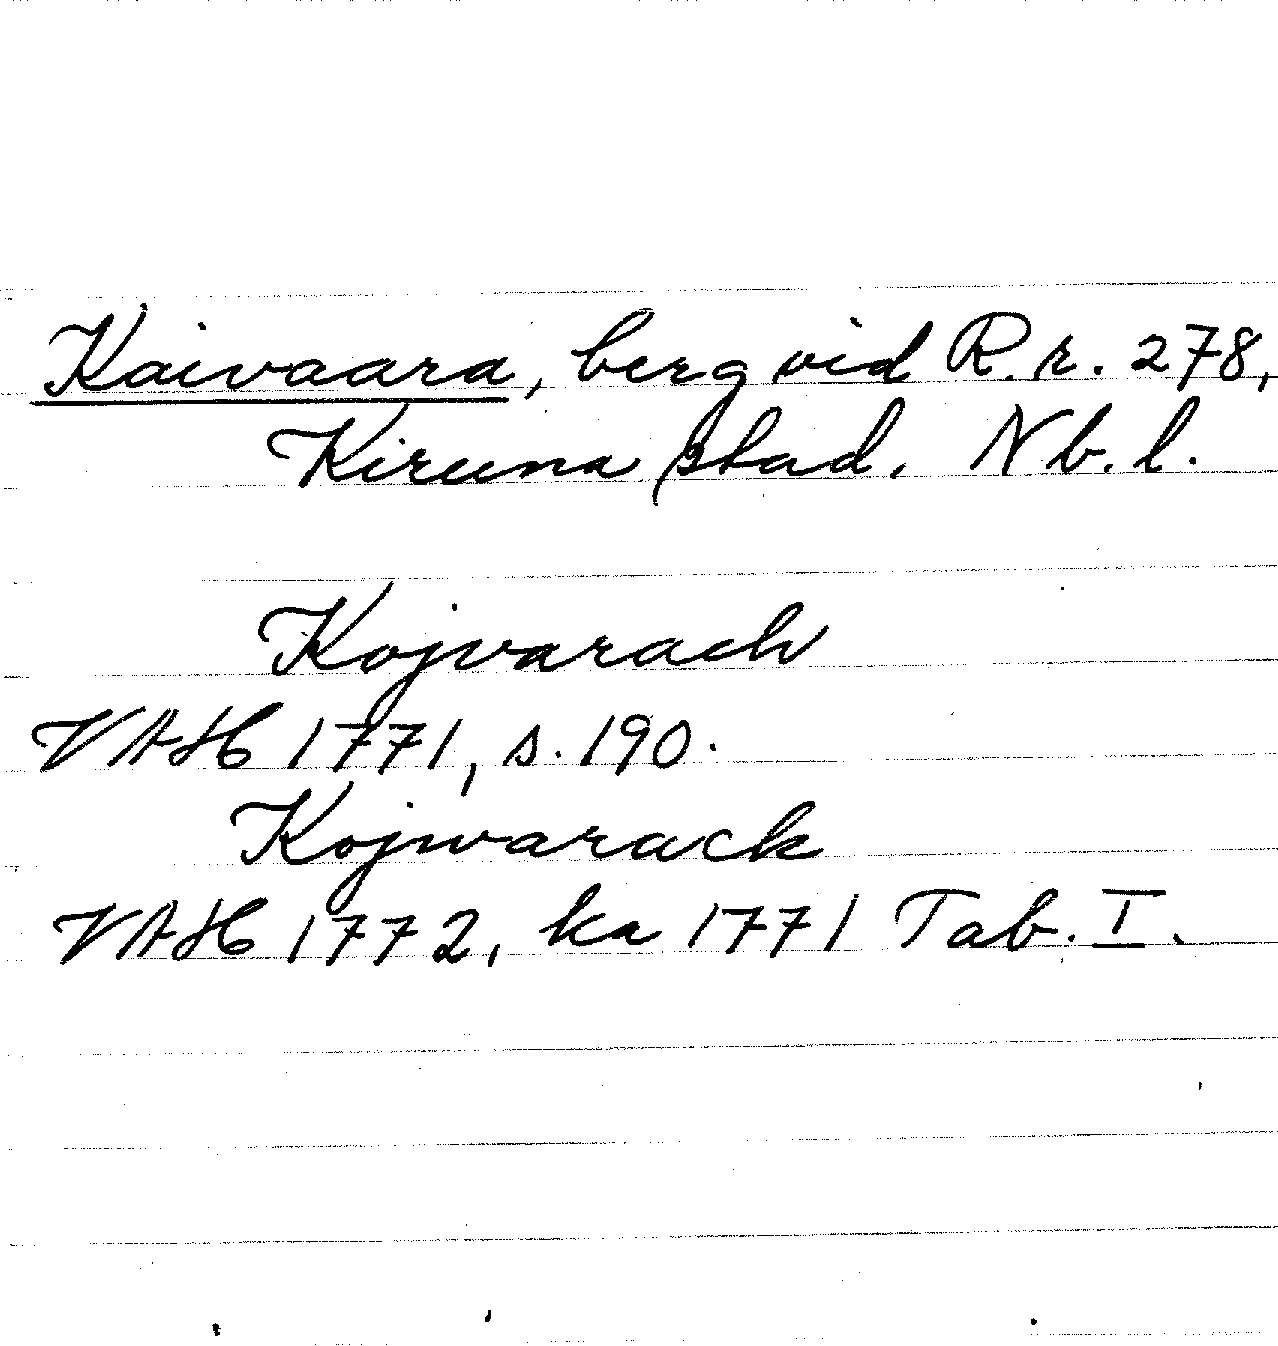 Kaivaara, berg vid R.r. 278,
Kiruna stad. Nb. l.
Kojvarach
VAH 1771, s. 190.
Kojwarack
VAH 1772, ka 1771 Tab. I.